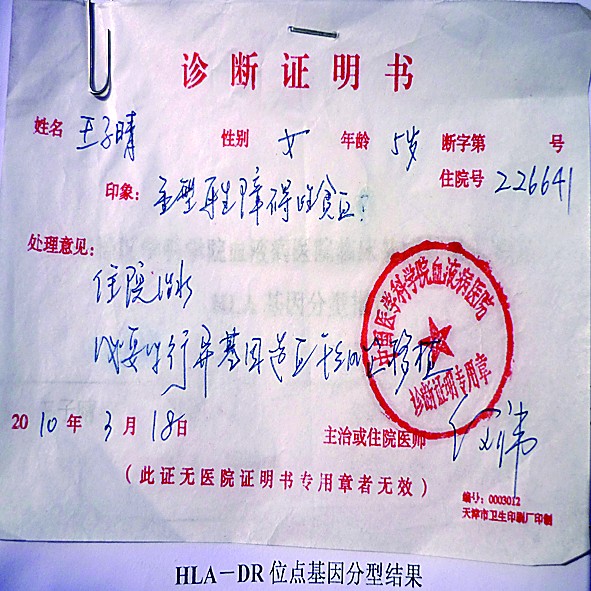 诊断证明书
姓名 王子晴 性别 女 年龄 5岁 断字第 号
住院号 226641
印象: 重型再生障碍性贫血?
处理意见:
住院治疗
必要时行异基因造血干细胞移植
中国医学科学院血液病医院
诊断证明专用章
2010年3月18日 主治或住院医师
(此证无医院证明书专用章者无效)
编号: 0003012
天津市卫生印刷厂印制
HLA-DR 位点基因分型结果